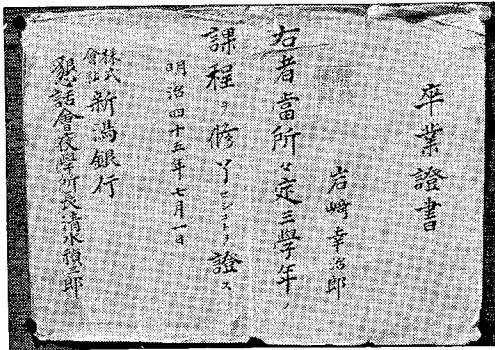 卒業證書
岩﨑幸治郎
右者當所ヲ定三學年ノ
課程ヲ修了セシコトヲ證ス
明治四十五年七月一日
株式會社新潟銀行
懇話會夜學所長清水禎三郎